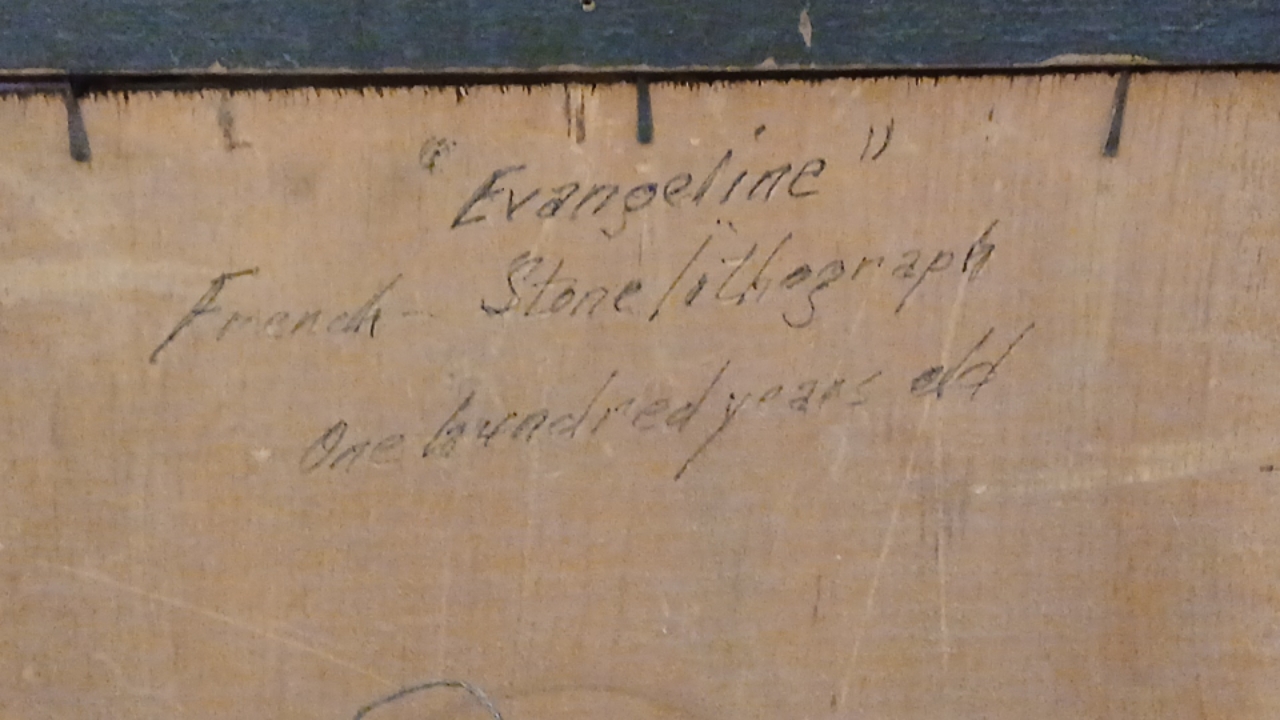 "Evangeline"
French - Stone lithograph
One hundred years old